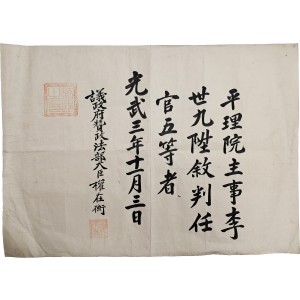 平理院主事李
世九陞敘判任
官五等者
光武三年十一月三日
議政府贊政法部大臣權在衡